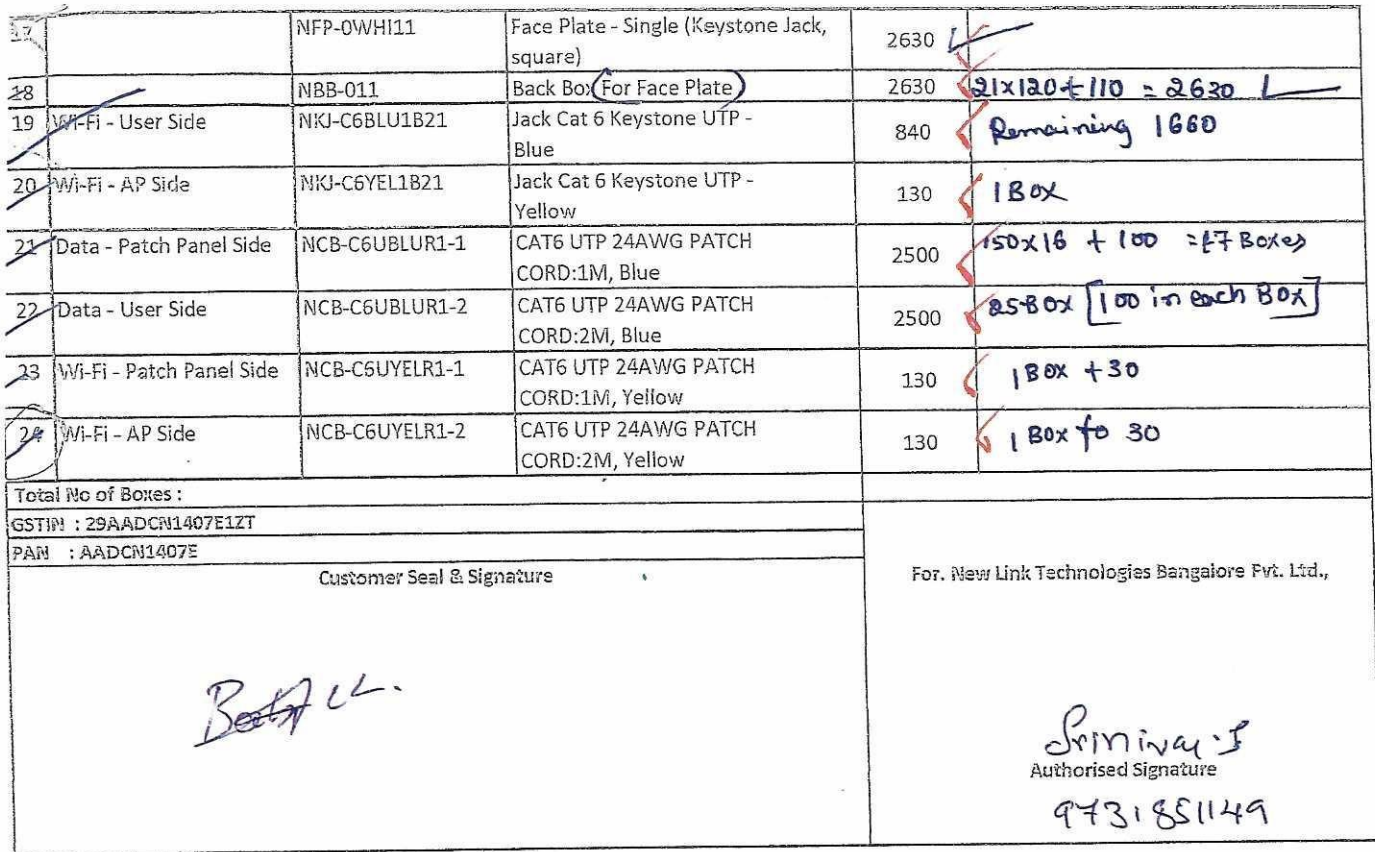 17 NFP-0WHI11 Face Plate - Single (Keystone Jack, 2630
square)
18 NBB-011 Back Box For Face Plate 2630 21x120+110 = 2630
19 Wi-Fi - User Side NKJ-C6BLU1B21 Jack Cat 6 Keystone UTP - 840 Remaining 1660
Blue
20 Wi-Fi - AP Side NKJ-C6YEL1B21 Jack Cat 6 Keystone UTP - 130 1 BOX
Yellow
21 Data - Patch Panel Side NCB-C6UBLUR1-1 CAT6 UTP 24AWG PATCH 2500 150x16 + 100 = 17 Boxes
CORD:1M, Blue
22 Data - User Side NCB-C6UBLUR1-2 CAT6 UTP 24AWG PATCH 2500 25 BOX [100 in each BOX]
CORD:2M, Blue
23 Wi-Fi - Patch Panel Side NCB-C6UYELR1-1 CAT6 UTP 24AWG PATCH 130 1 BOX + 30
CORD:1M, Yellow
24 Wi-Fi - AP Side NCB-C6UYELR1-2 CAT6 UTP 24AWG PATCH 130 1 BOX to 30
CORD:2M, Yellow
Total No of Boxes :
GSTIN : 29AADCN1407E1ZT
PAN : AADCN1407E
Customer Seal & Signature
For. New Link Technologies Bangalore Pvt. Ltd.,
Authorised Signature
9731851149